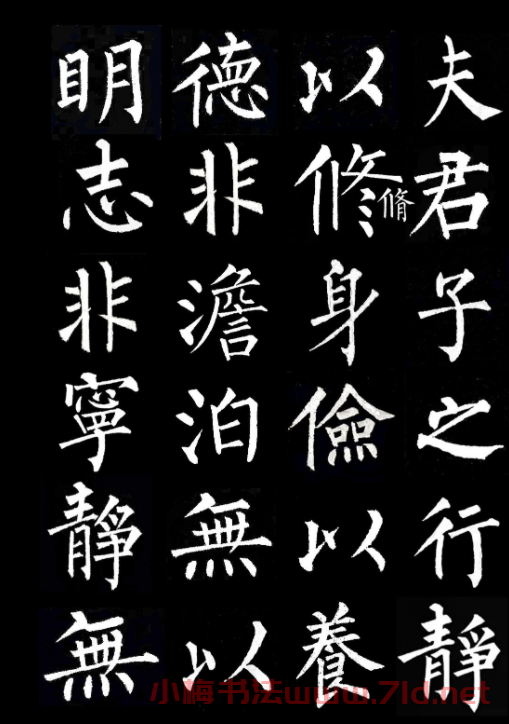 夫君子之行靜
以修身儉以養
脩
德非澹泊無以
明志非寧靜無
小梅书法www.7ld.net